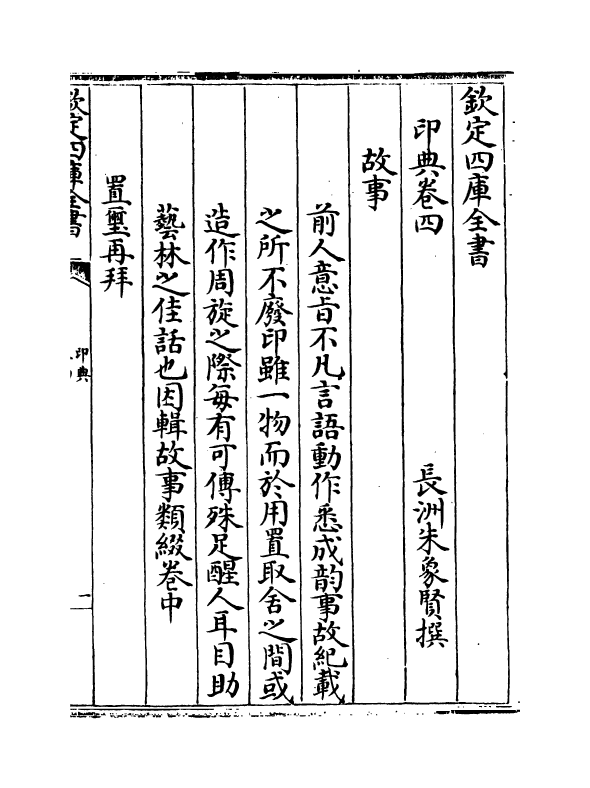 欽定四庫全書
印典卷四
長洲朱象賢撰
故事
前人意旨不凡言語動作悉成韵事故紀載
之所不廢印雖一物而於用置取舍之間或
造作周旋之際每有可傳殊足醒人耳目助
藝林之佳話也因輯故事類綴卷中
置璽再拜
欽定四庫全書
印典
一